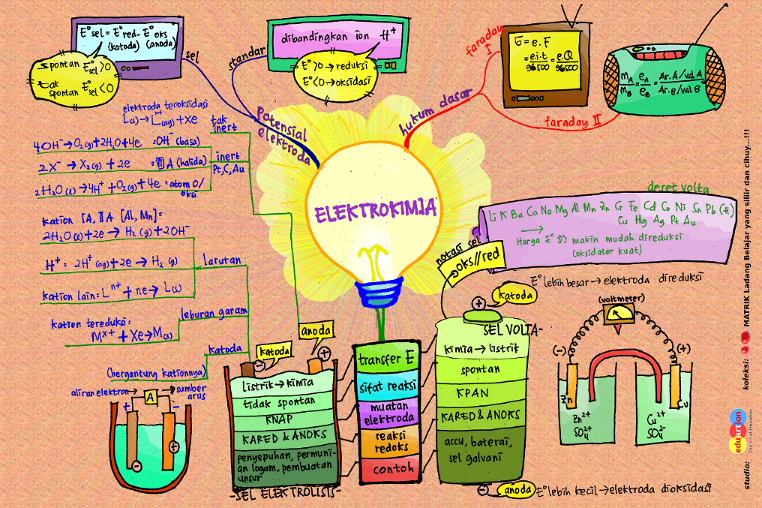 E°sel = E°red - E°oks
(katoda) (anoda)
spontan E°sel > 0
tak spontan E°sel < 0
sel
standar
dibandingkan ion H⁺
E° > 0 → reduksi
E° < 0 → oksidasi
potensial elektroda
hukum dasar
faraday I
G = e.F
= e.i.t / 96500 = e.Q / 96500
faraday II
mA/mB = eA/eB = Ar.A/val A / Ar.B/val B
elektroda teroksidasi
L(s) → Lˣ⁺(aq) + Xe
tak inert
4OH⁻ → O₂(g) + 2H₂O + 4e = OH⁻ (basa)
2X⁻ → X₂(g) + 2e = VII A (halida)
inert
Pt, C, Au
2H₂O(l) → 4H⁺ + O₂(g) + 4e = atom O/
oksi
kation IA, IIA [Al, Mn]:
2H₂O(l) + 2e → H₂(g) + 2OH⁻
H⁺: 2H⁺(aq) + 2e → H₂(g)
larutan
kation lain: Lⁿ⁺ + ne → L(s)
leburan garam
kation tereduksi:
Mˣ⁺ + Xe → M(s)
katoda
(bergantung kationnya)
ELEKTROKIMIA
deret volta
Li K Ba Ca Na Mg Al Mn Zn Cr Fe Cd Co Ni Sn Pb (H)
Cu Hg Ag Pt Au
→
Harga E° >> makin mudah direduksi
(oksidator kuat)
notasi sel
oks//red
E° lebih besar → elektroda direduksi
katoda
+
SEL VOLTA
kimia → listrik
spontan
KPAN
KARED & ANOKS
accu, baterai,
sel galvani
-
anoda
E° lebih kecil → elektroda dioksidasi
transfer E
sifat reaksi
muatan elektroda
reaksi redoks
contoh
katoda
anoda
-
+
listrik → kimia
tidak spontan
KNAP
KARED & ANOKS
penyepuhan, permuni-
an logam, pembuatan
unsur
-SEL ELEKTROLISIS-
aliran elektron
A
sumber arus
+
-
-
+
(voltmeter)
V
(-)
(+)
Zn
Cu
Zn²⁺
SO₄²⁻
Cu²⁺
SO₄²⁻
studio: eduartion
koleksi: MATRIK Ladang Belajar yang silir dan cihuy...!!!